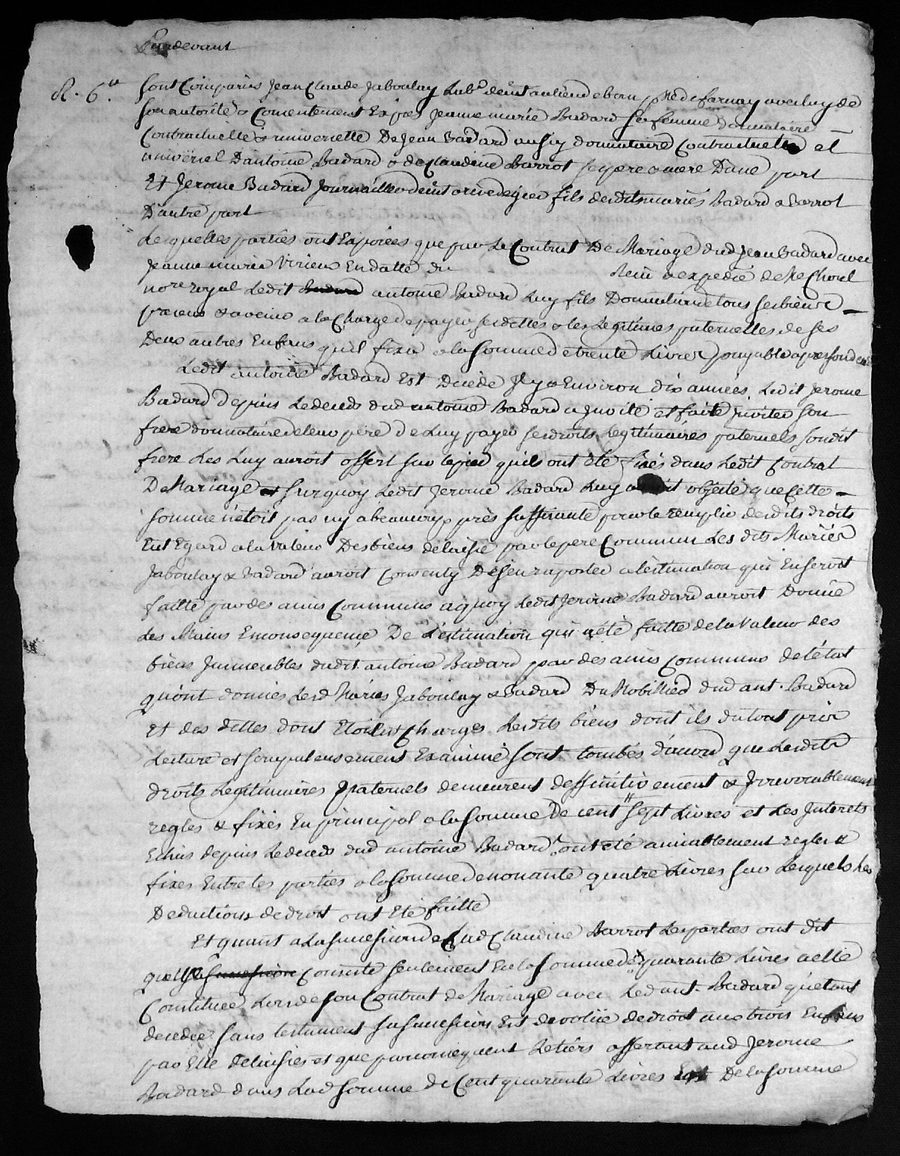 Pardevant
R. 6.tt
sont Comparus Jean Claude Jaboulay Lab.r demt au lieu de ban psse de farnay avec luy de
son autorité & Consentement Expres Jeanne marie Badard sa femme donnataire
Contractuelle & universelle De Jean Badard aussy donnataire Contractuel et
universel D'antoine Badard & de Claudine Barrot ses pere & mere D'une part
Et Jerome Badard Journallier demt a rivedegier fils desdits mariés Badard & Barrot
D'autre part
Lesquelles parties ont Exposées que par Le Contrat De Mariage dud Jean Badard avec
Jeanne marie Virieux En datte du reçu & expedié de Me Choul
nore royal Ledit antoine Badard Luy fils Donnataire de tous ses biens
presens & avenir a la Charge de payer ses dettes & les Legitimes paternelles de ses
Deux autres Enfans quil fixa a la somme de trente Livres payable apres son deces
Ledit antoine Badard Est Decédé Il y a Environ dix années. Ledit Jerome
Badard depuis Le deceds dud antoine Badard a Invité et faite Inviter son
frere donnataire de leur père De Luy payer ses droits Legitimaires paternels sondit
frere Les Luy auroit offert sur le pied quils ont été fixés dans Ledit Contrat
De Mariage surquoy Ledit Jerome Badard Luy objecté que Cette
somme n'étoit pas ny a beaucoup près suffisante pour le remplir desdits droits
Eut Egard a la Valeur Des biens délaissé par le pere Commun Les dits Mariés
Jaboulay & Badard auroit Consenty De s'en raporter a l'estimation qui En seroit
faitte par des amis Communs a quoy Ledit Jerome Badard auroit Donné
Les Mains En consequence De L'estimation qui a été faitte de la Valeur des
biens Immeubles dudit antoine Badard par des amis Communs de l'état
qu'ont donnés Lesd Mariés Jaboulay & Badard Du Mobillier dud ant. Badard
Et des dettes dont Etoient Chargés Lesdits biens dont ils du tout pris
Lecture et scrupuleusement Examiné sont tombés d'accord que Lesdits
droits Legitimaires Paternels demeurent deffinitivement & Irrevocablement
regles & fixés En principal a la somme De cent sept Livres et Les Interets
Echus depuis Le deceds dud antoine Badard ont été amiablement reglés &
fixés Entre les parties a la somme de nonante quatre Livres sur Lesquels Les
Deductions de droit ont Eté faitte
Et quant a La succession de Lad Claudine Barrot Les parties ont dit
quelle Consiste seulement En la somme de quarante Livres a elle
Constituée Lors de son Contrat de Mariage avec Led ant. Badard qu'étant
decedée sans testament sa succession Est devolüe de droit aux trois Enfans
par Elle delaissés et que par consequent Le tiers afferant aud Jerome
Badard dans Lad somme de Cent quarante Livres Est De la somme